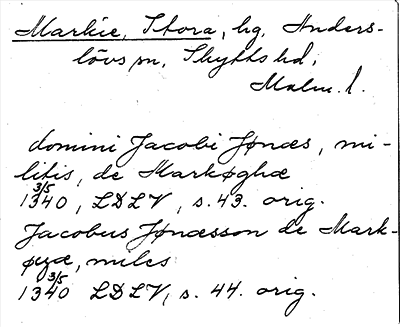 Markie, Stora, hg, Anders-
lövs sn, Skytts hd;
Malm. l.
domini Jacobi Jønæs, mi-
litis, de Markøghæ
3/5
1340, LDLV, s. 43. orig.
Jacobus Jønæsson de Mark-
øyæ, miles
3/5
1340 LDLV, s. 44. orig.